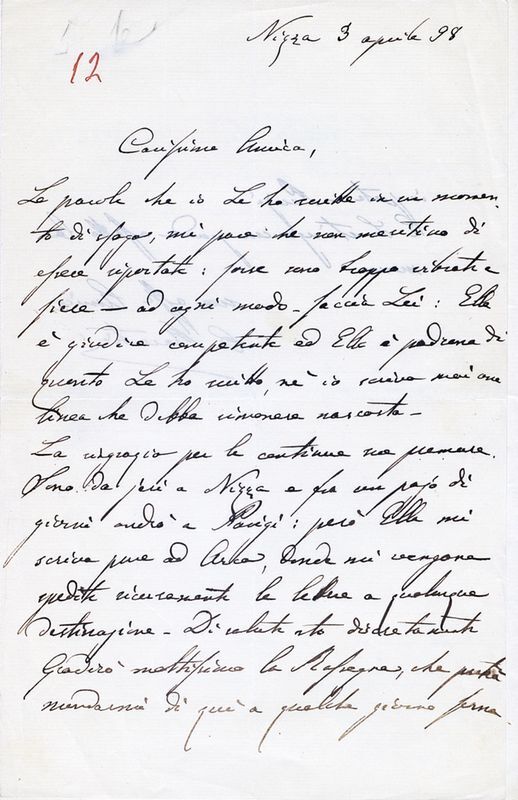 Nizza 3 aprile 98
12
Carissima Amica,
Le parole che io Le ho scritte in un momen-
to di sfogo, mi pare che non meritino di
essere riportate: forse sono troppo vibrate e
fiere — ad ogni modo — faccia Lei: Ella
è giudice competente ed Ella è padrona di
quanto Le ho scritto, nè io scrivo mai una
linea che debba rimanere nascosta —
La ringrazio per le continue sue premure.
Sono da jeri a Nizza e fra un pajo di
giorni andrò a Parigi: però Ella mi
scriva pure ad Arco, donde mi vengono
spedite sicuramente le lettere a qualunque
destinazione — Di salute sto discretamente
Gradirò moltissimo la Rassegna, che potrà
mandarmi di qui a qualche giorno